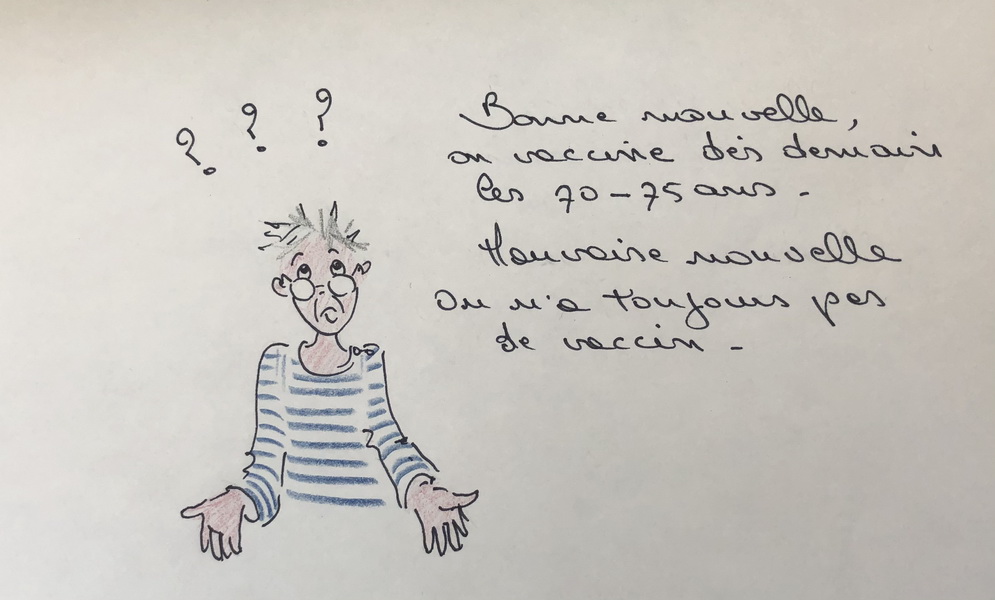 ? ? ?
Bonne nouvelle,
on vaccine dès demain
les 70-75 ans.
Mauvaise nouvelle
on n'a toujours pas
de vaccin.